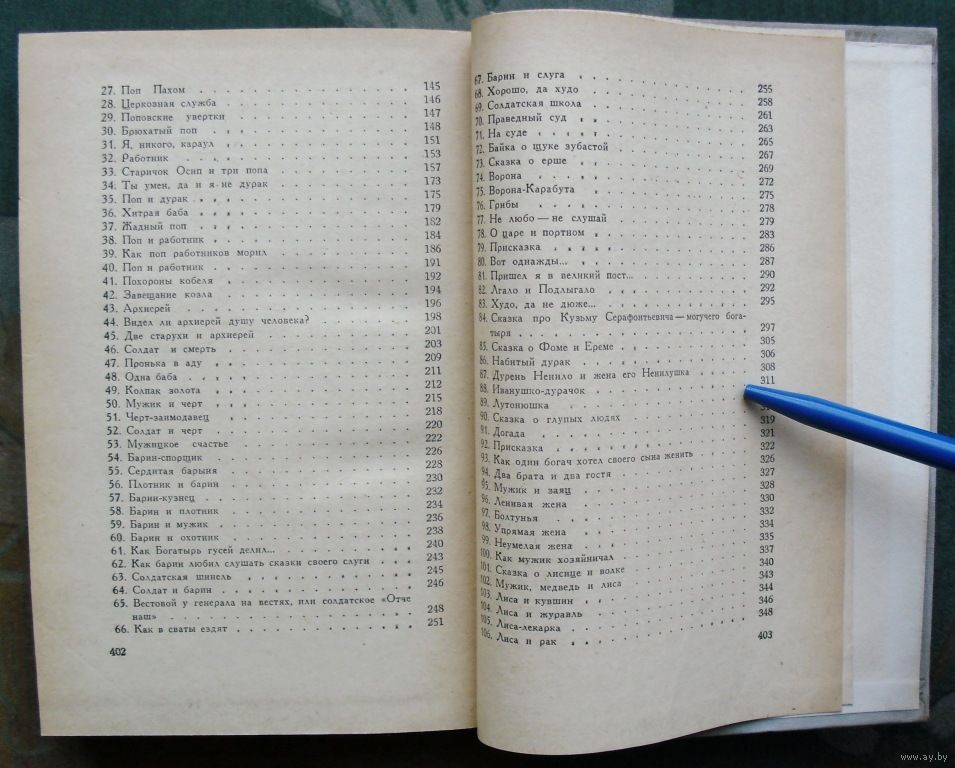 27. Поп Пахом 145
28. Церковная служба 146
29. Поповские увертки 147
30. Брюхатый поп 148
31. Я, никого, караул 151
32. Работник 153
33. Старичок Осип и три попа 157
34. Ты умен, да и я не дурак 173
35. Поп и дурак 175
36. Хитрая баба 179
37. Жадный поп 182
38. Поп и работник 184
39. Как поп работников морил 186
40. Поп и работник 191
41. Похороны кобеля 192
42. Завещание козла 194
43. Архиерей 196
44. Видел ли архиерей душу человека? 198
45. Две старухи и архиерей 201
46. Солдат и смерть 203
47. Пронька в аду 209
48. Одна баба 211
49. Колпак золота 212
50. Мужик и черт 215
51. Черт-заимодавец 218
52. Солдат и черт 220
53. Мужицкое счастье 222
54. Барин-спорщик 226
55. Сердитая барыня 228
56. Плотник и барин 230
57. Барин-кузнец 232
58. Барин и плотник 234
59. Барин и мужик 236
60. Барин и охотник 238
61. Как Богатырь гусей делил... 240
62. Как барин любил слушать сказки своего слуги 243
63. Солдатская шинель 245
64. Солдат и барин 246
65. Вестовой у генерала на вестях, или солдатское «Отче
наш» 248
66. Как в сваты ездят 251
402
67. Барин и слуга 255
68. Хорошо, да худо 258
69. Солдатская школа 261
70. Праведный суд 263
71. На суде 265
72. Байка о щуке зубастой 267
73. Сказка о ерше 269
74. Ворона 272
75. Ворона-Карабута 275
76. Грибы 278
77. Не любо — не слушай 279
78. О царе и портном 283
79. Присказка 286
80. Вот однажды... 287
81. Пришел я в великий пост... 290
82. Лгало и Подлыгало 292
83. Худо, да не дюже... 295
84. Сказка про Кузьму Серафонтьевича — могучего бога-
тыря 297
85. Сказка о Фоме и Ереме 305
86. Набитый дурак 306
87. Дурень Ненило и жена его Ненилушка 308
88. Иванушко-дурачок 311
89. Лутонюшка
90. Сказка о глупых людях
91. Догада 319
92. Присказка 321
93. Как один богач хотел своего сына женить 322
94. Два брата и два гостя 326
95. Мужик и заяц 327
96. Ленивая жена 328
97. Болтунья 330
98. Упрямая жена 332
99. Неумелая жена 334
100. Как мужик хозяйничал 335
101. Сказка о лисице и волке 337
102. Мужик, медведь и лиса 340
103. Лиса и кувшин 343
104. Лиса и журавль 344
105. Лиса-лекарка 346
106. Лиса и рак 348
403
www.ay.by